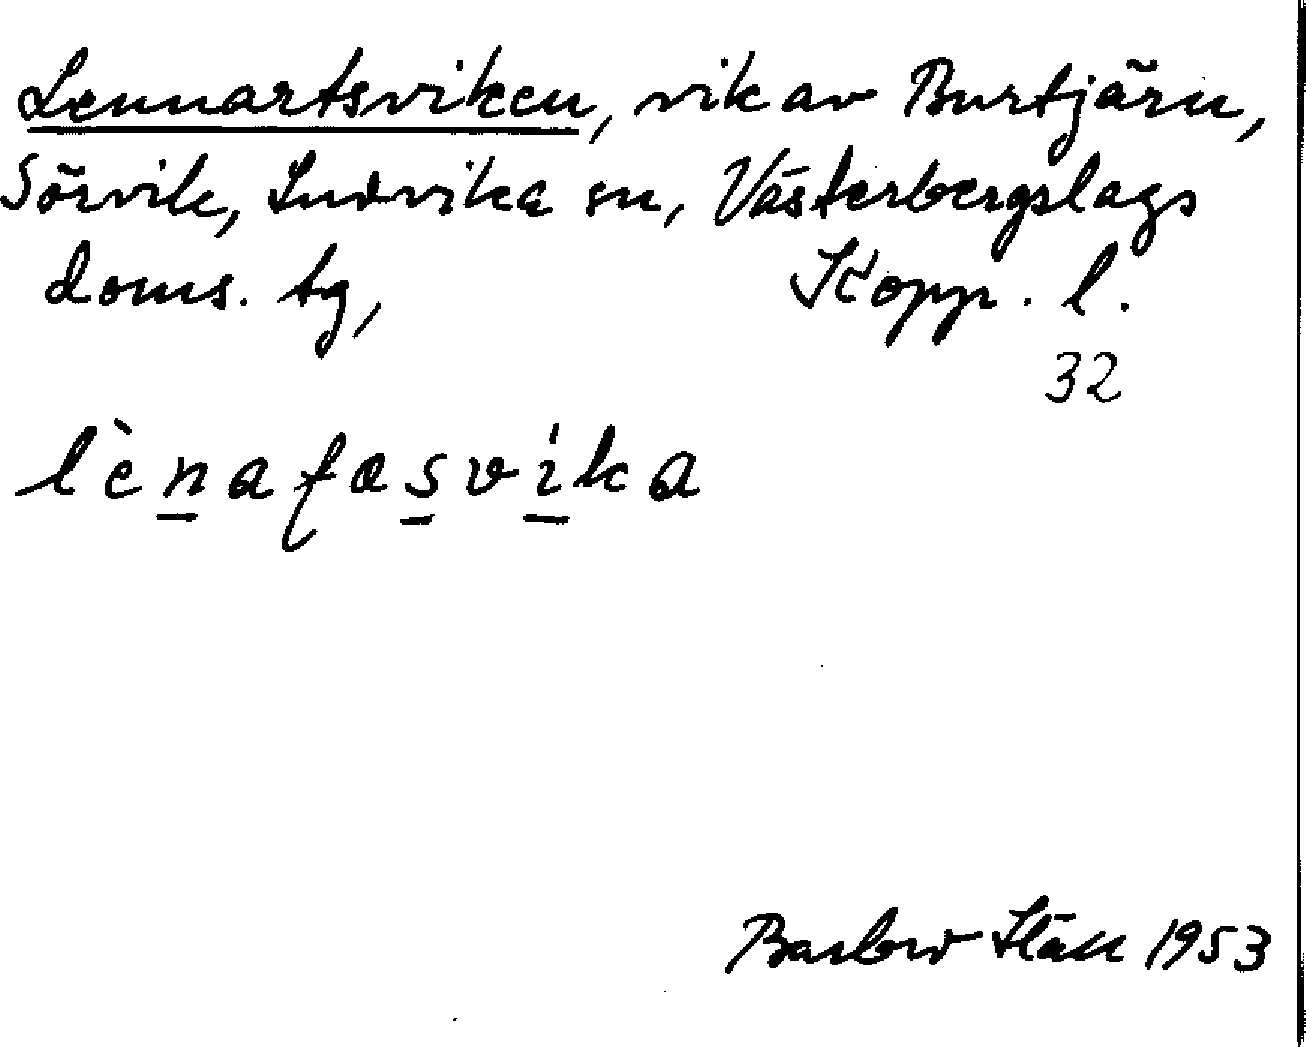 Lennartsviken, vik av Burtjärn,
Sörvik, Ludvika sn, Västerbergslags
doms. tg, Kopp. l.
32
1953